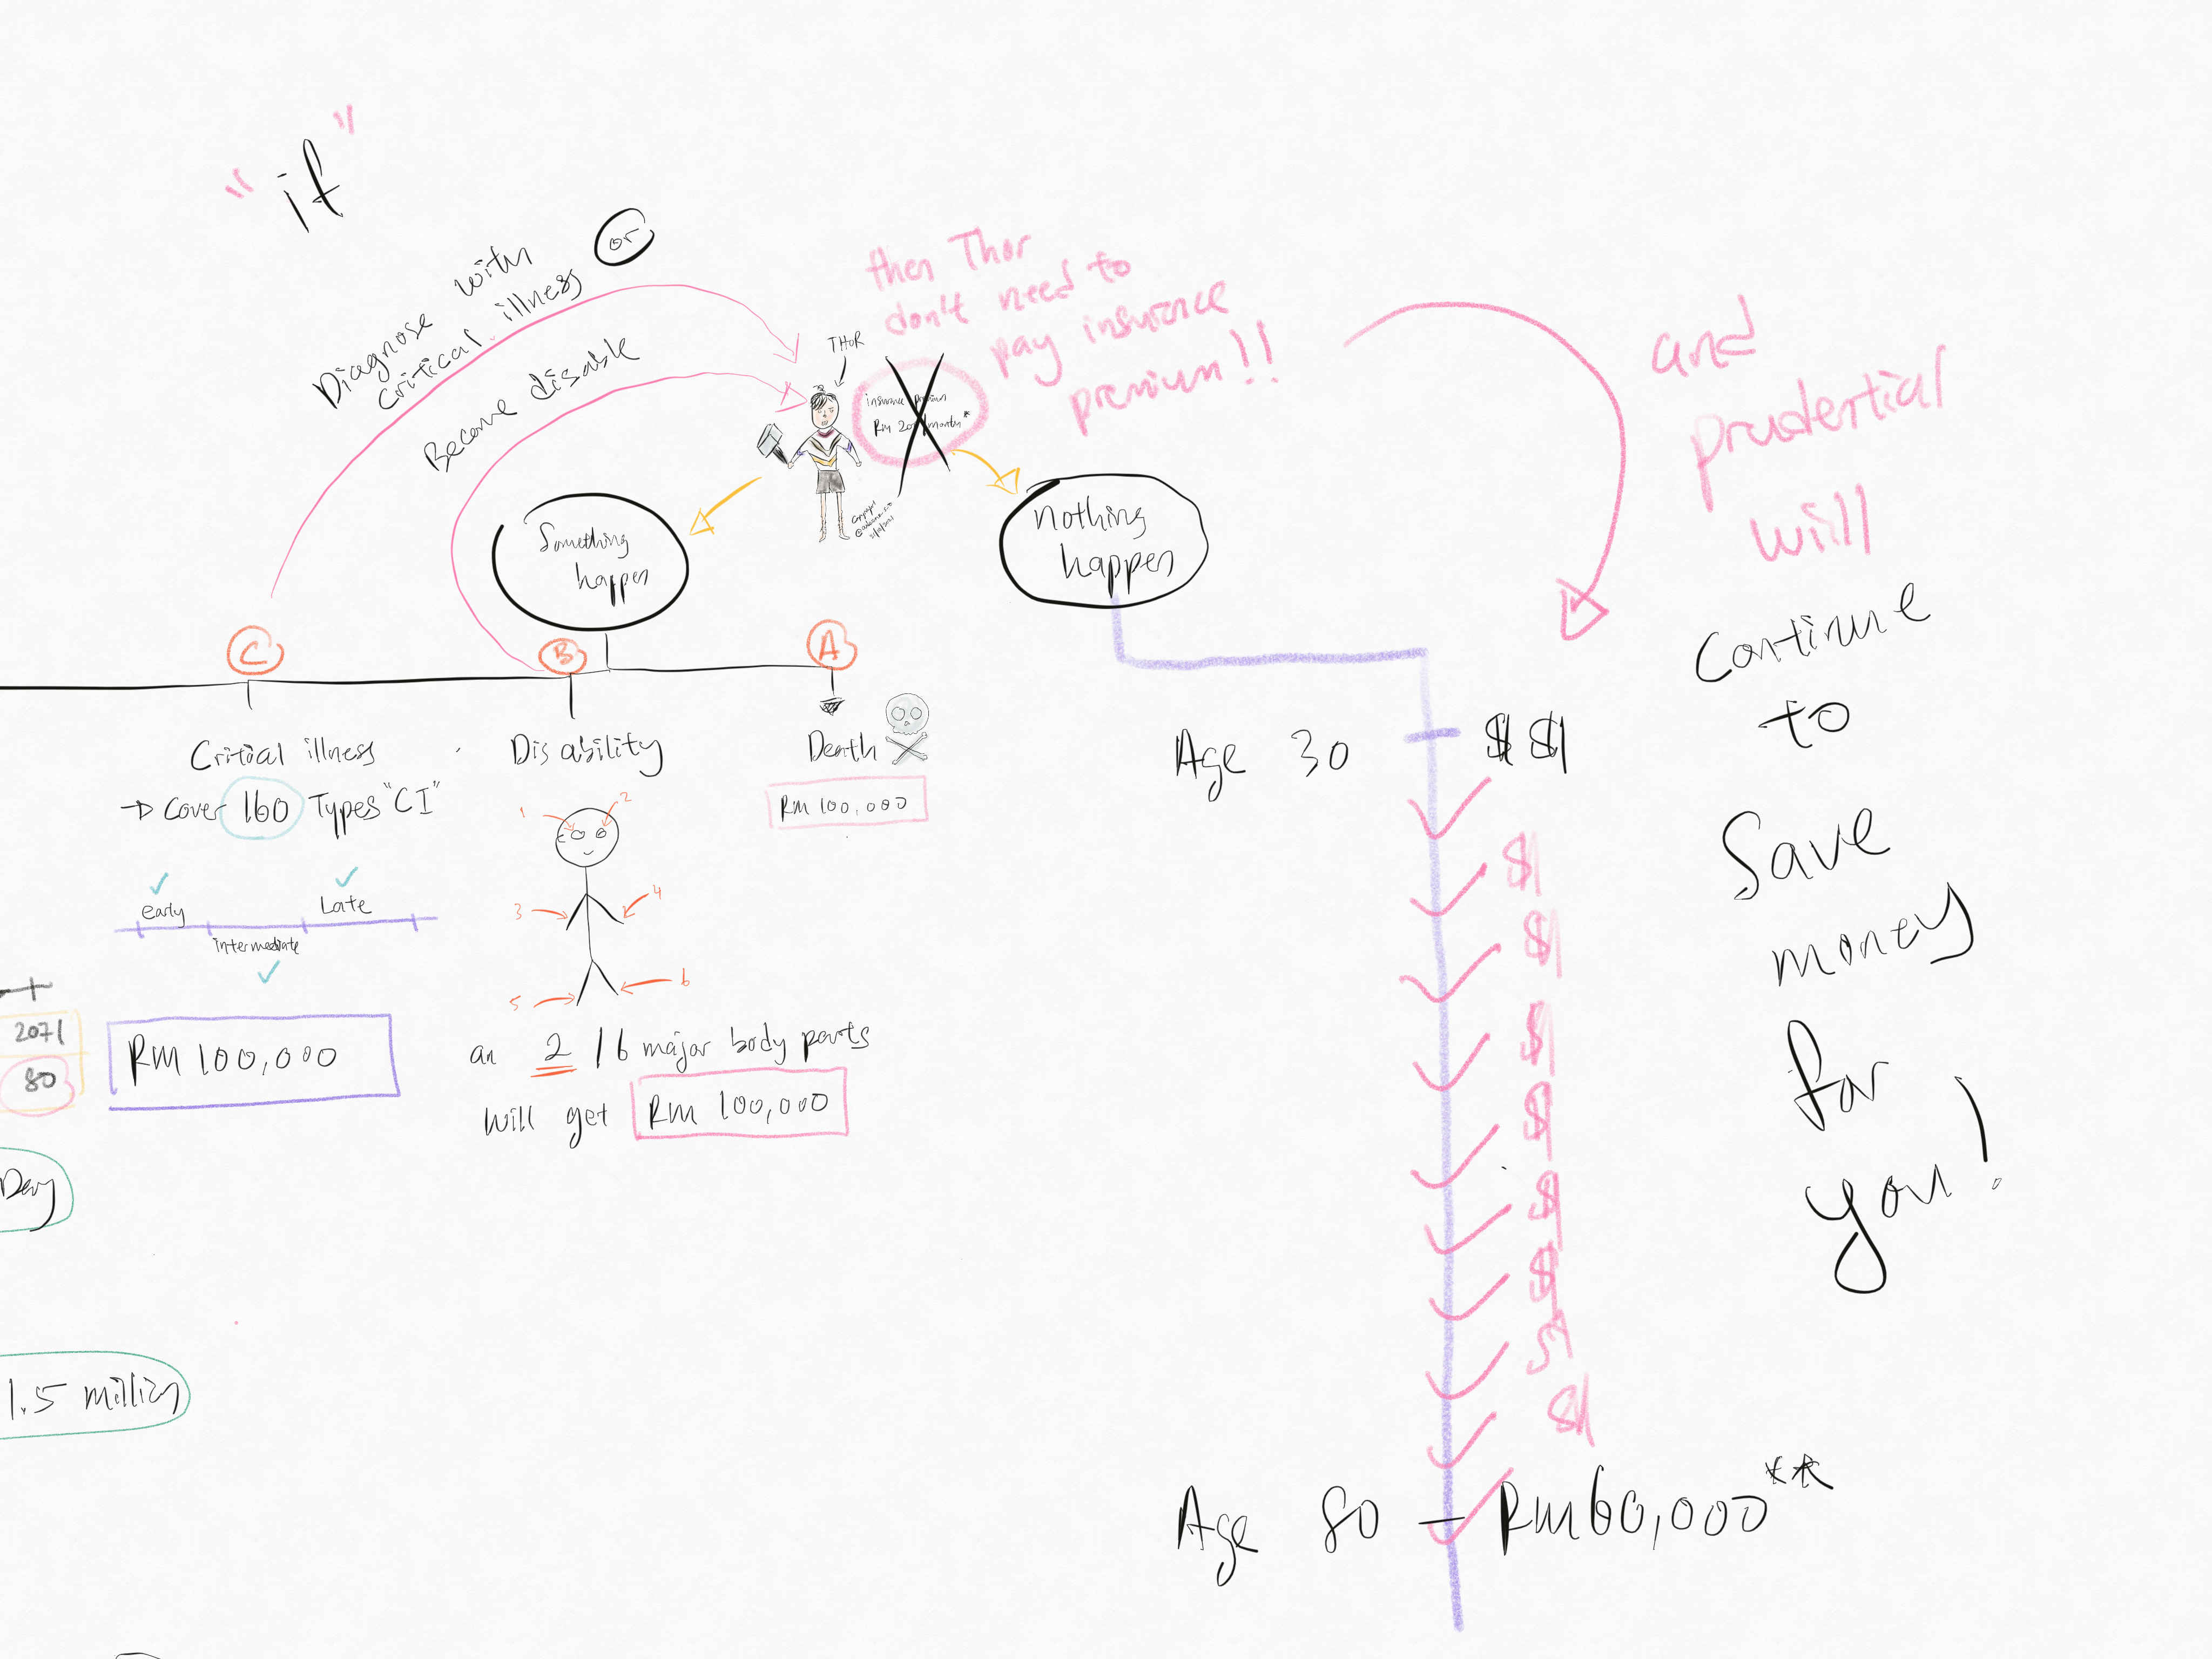 "if"
Diagnose with
critical illness
or
Become disable
THOR
then Thor
don't need to
pay insurence
premium!!
insurance premium
and
prudential
will
Continue
to
Save
money
for
you!
Something
happen
nothing
happen
C
B
A
Critical illness
→ Cover 160 Types "CI"
early
Late
intermediate
RM 100,000
Disability
1
2
3
4
5
6
an 2 / 6 major body parts
will get RM 100,000
Death
RM 100,000
2071
80
Day
1.5 million
Age 30
$ $
$
$
$
$
$
$
$
$
Age 80 — RM60,000**